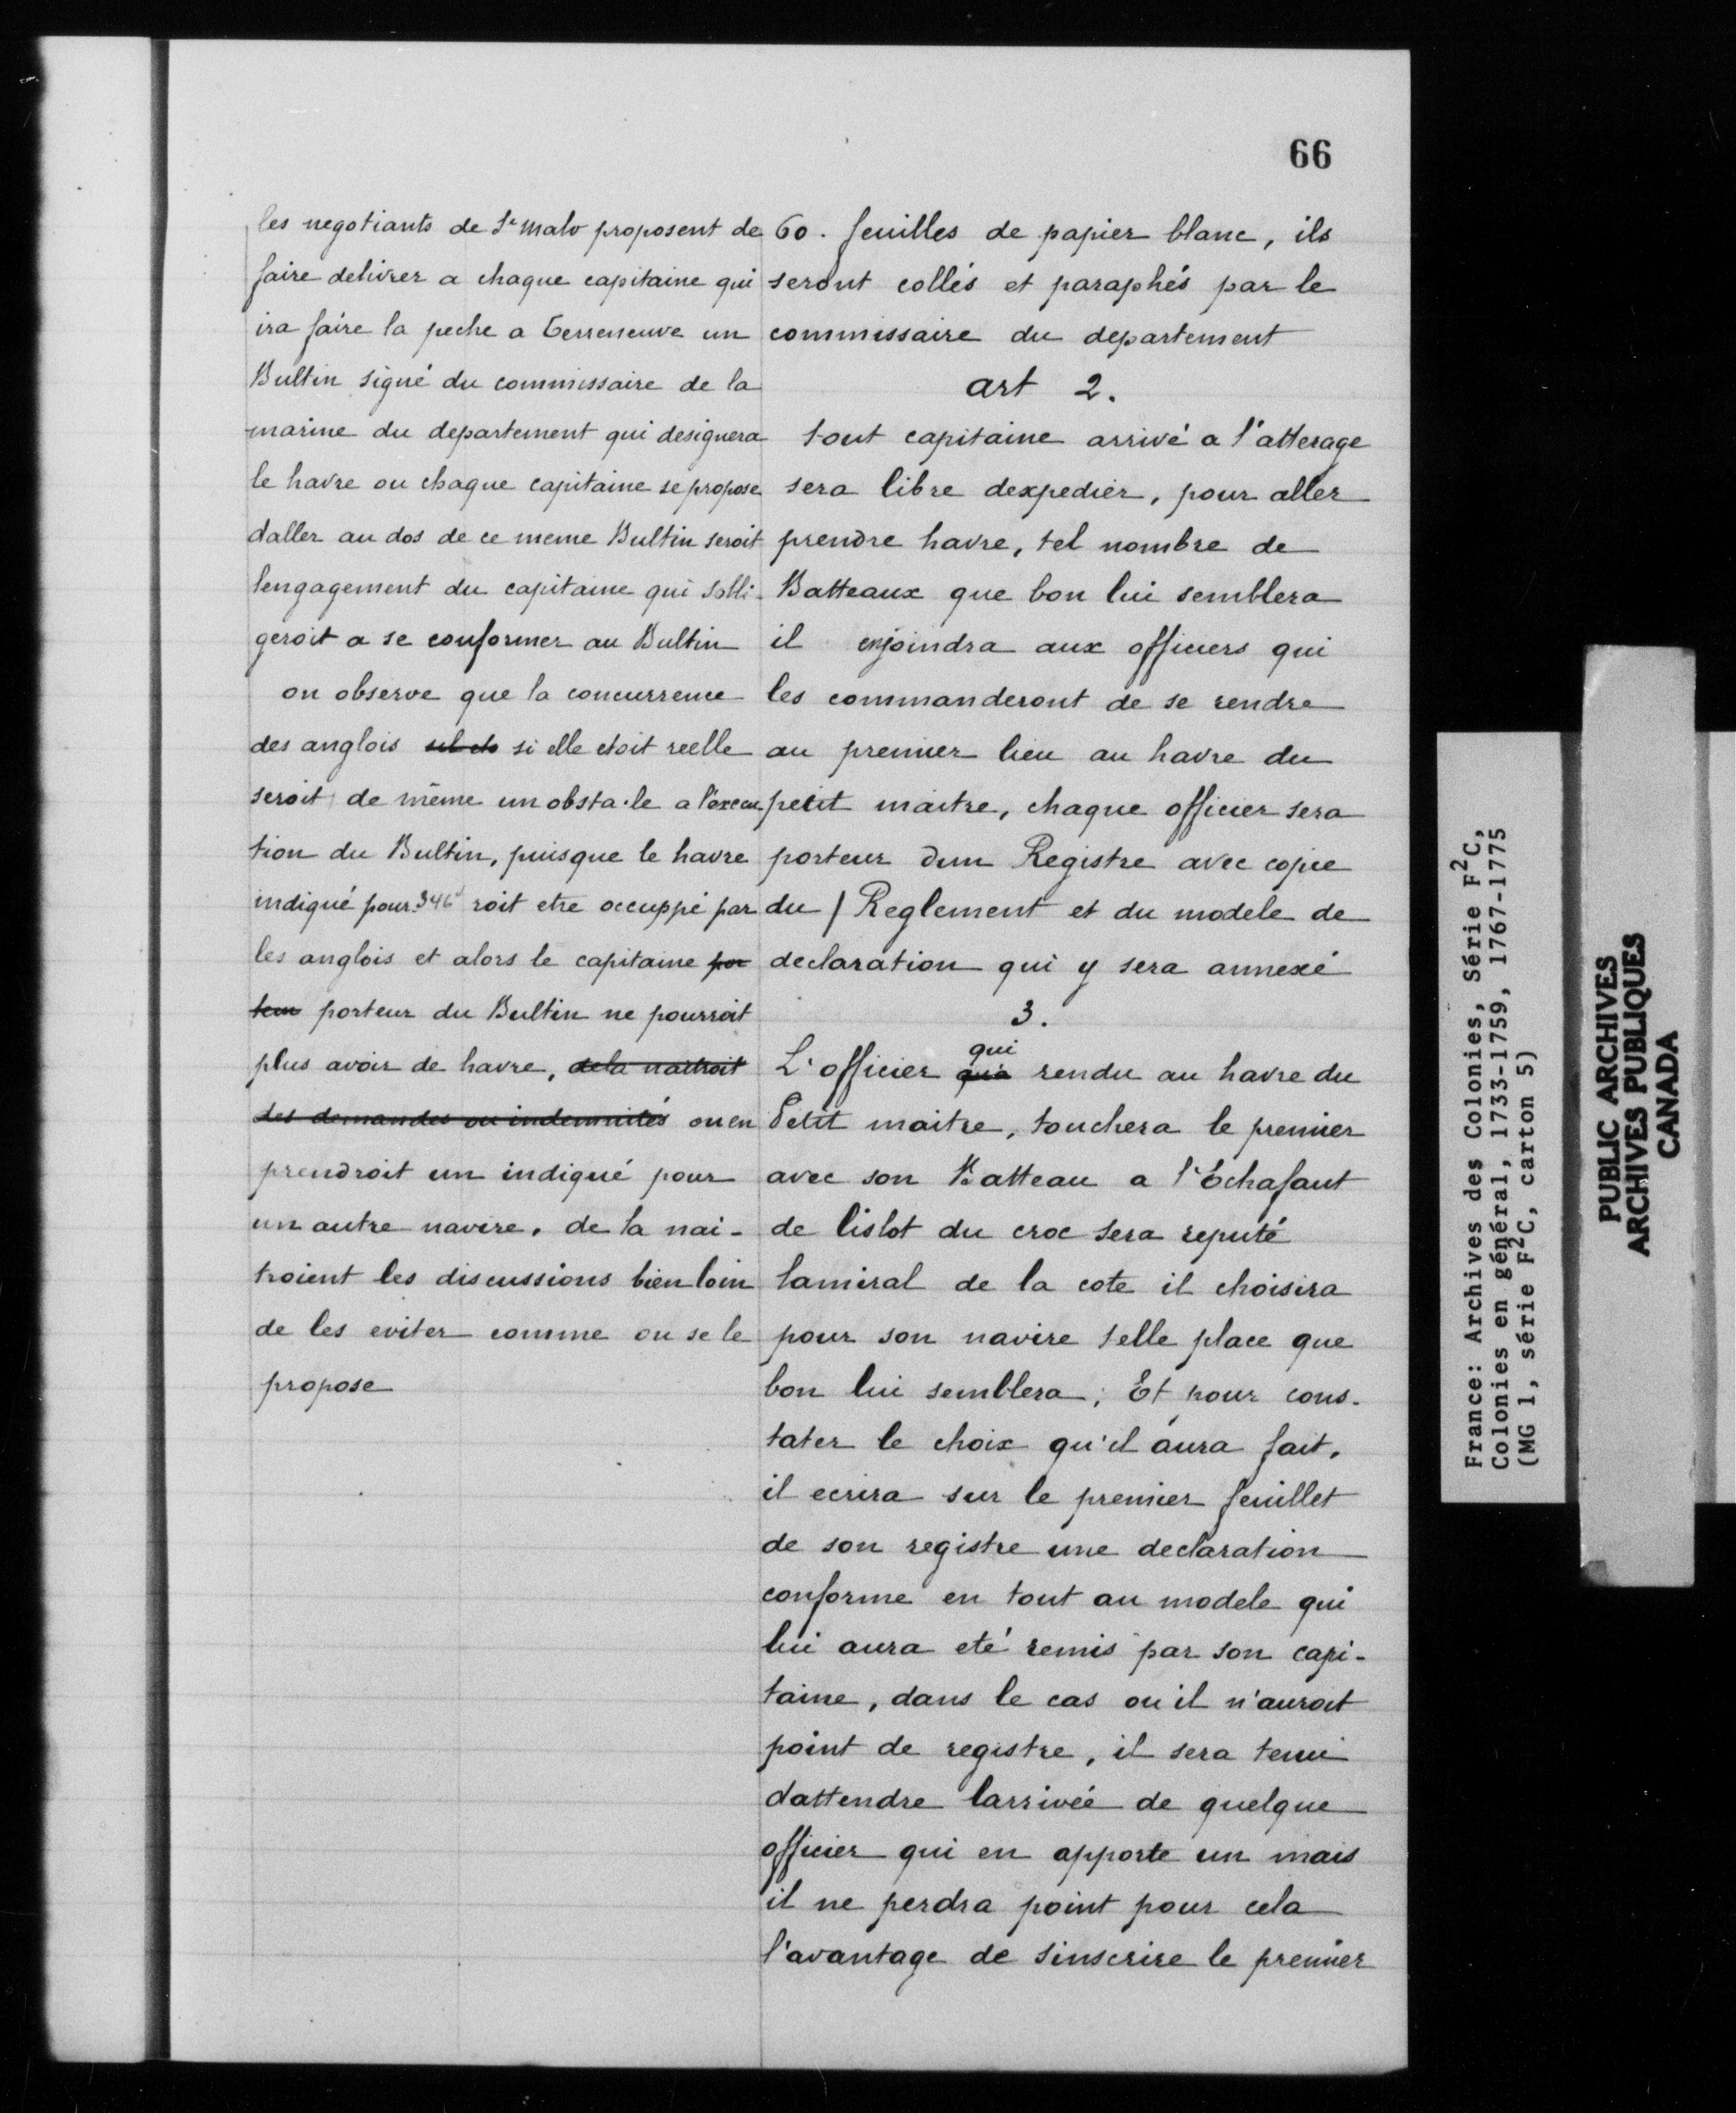 66
les negotiants de St malo proposent de
faire delivrer a chaque capitaine qui
ira faire la peche a Terreneuve un
Bultin signé du commissaire de la
marine du departement qui designera
le havre ou chaque capitaine se propose
daller au dos de ce meme Bultin seroit
lengagement du capitaine qui sobli-
geroit a se conformer au Bultin
on observe que la concurrence
des anglois si elle etoit reelle
seroit de même un obstacle a l'execu
tion du Bultin, puisque le havre
indiqué pour 346 roit etre occuppé par
les anglois et alors le capitaine por
teur porteur du Bultin ne pourroit
plus avoir de havre, dela naitroit
des demandes ou indemnités ou en
prendroit un indiqué pour
un autre navire. de la nai-
troient les discussions bien loin
de les eviter comme on se le
propose
60. feuilles de papier blanc, ils
seront collés et paraphés par le
commissaire du departement
art 2.
tout capitaine arrivé a l'atterage
sera libre dexpedier, pour aller
prendre havre, tel nombre de
Batteaux que bon lui semblera
il enjoindra aux officiers qui
les commanderont de se rendre
au premier lieu au havre du
petit maitre, chaque officier sera
porteur dun Registre avec copie
du / Reglement et du modele de
declaration qui y sera annexé
3.
qui
L'officier qu'a rendu au havre du
Petit maitre, touchera le premier
avec son Batteau a l'Echafaut
de lislot du croc sera reputé
lamiral de la cote il choisira
pour son navire telle place que
bon lui semblera; Et pour cons-
tater le choix qu'il aura fait,
il ecrira sur le premier feuillet
de son registre une declaration
conforme en tout au modele qui
lui aura eté remis par son capi-
taine, dans le cas ou il n'auroit
point de registre, il sera tenu
dattendre larrivée de quelque
officier qui en apporte un mais
il ne perdra point pour cela
l'avantage de sinscrire le premier
France: Archives des Colonies, Série F2C,
Colonies en général, 1733-1759, 1767-1775
(MG 1, série F2C, carton 5)
PUBLIC ARCHIVES
ARCHIVES PUBLIQUES
CANADA